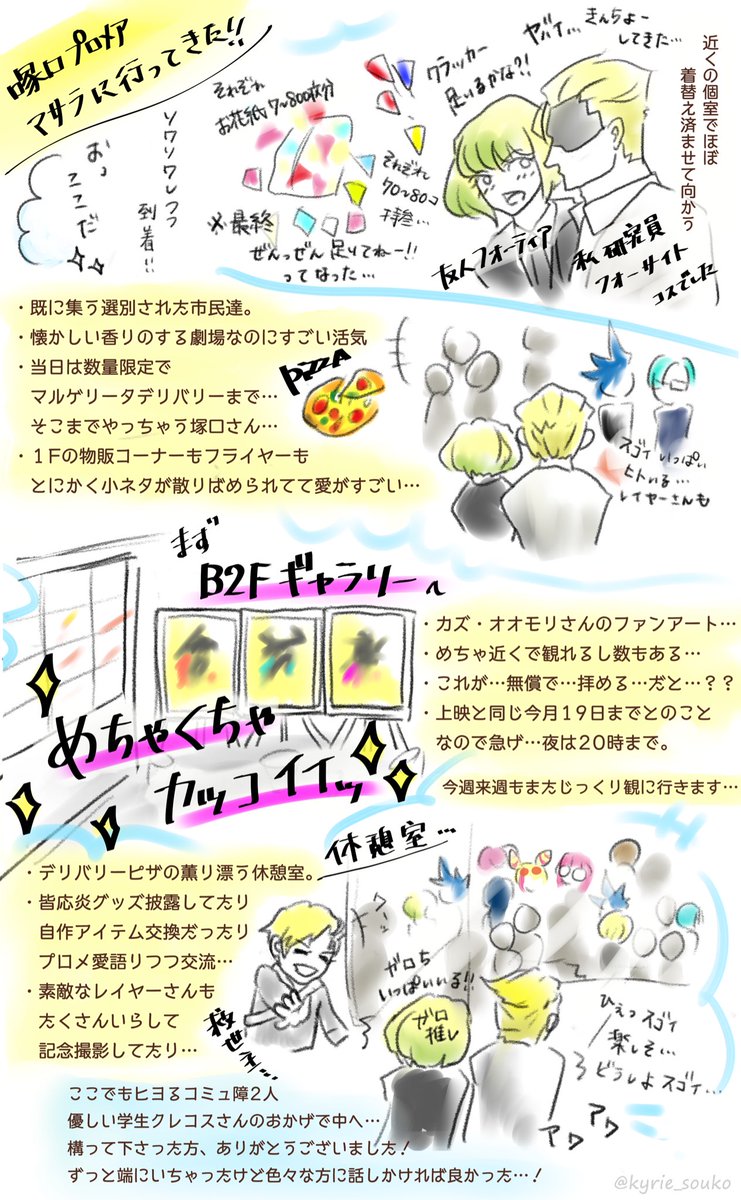 塚口プロメア
マサラに行ってきた!!
近くの個室でほぼ
着替え済ませて向かう
ヤバイ…きんちょー
してきた…
クラッカー
足いるかな?!
それぞれ
お花紙7~800枚分
それぞれ
70~80コ
持参…
※最終
ぜんっぜん足りてねー!!
ってなった…
友人フォーティア
私 研究員
フォーサイト
コスでした
ソワソワしつつ
到着!!
おっ
ここだ
・既に集う選別された市民達。
・懐かしい香りのする劇場なのにすごい活気
・当日は数量限定で
マルゲリータデリバリーまで…
そこまでやっちゃう塚口さん…
・1Fの物販コーナーもフライヤーも
とにかく小ネタが散りばめられてて愛がすごい…
PIZZA
スゴイ いっぱい
ヒトいる…
レイヤーさんも
まず
B2Fギャラリーへ
めちゃくちゃ
カッコイイッ
・カズ・オオモリさんのファンアート…
・めちゃ近くで観れるし数もある…
・これが…無償で…拝める…だと…??
・上映と同じ今月19日までとのこと
なので急げ…夜は20時まで。
今週来週もまたじっくり観に行きます…
休憩室…
・デリバリーピザの薫り漂う休憩室。
・皆応炎グッズ披露してたり
自作アイテム交換だったり
プロメ愛語りつつ交流…
・素敵なレイヤーさんも
たくさんいらして
記念撮影してたり…
救世主…
ガロち
いっぱいいる!!
ガロ
推し
ひぇっスゴイ
楽しそ…
どうしよスゴイ…
アワ
アワ
ここでもヒヨるコミュ障2人
優しい学生クレコスさんのおかげで中へ…
構って下さった方、ありがとうございました!
ずっと端にいちゃったけど色々な方に話しかければ良かった…!
@kyrie_souko